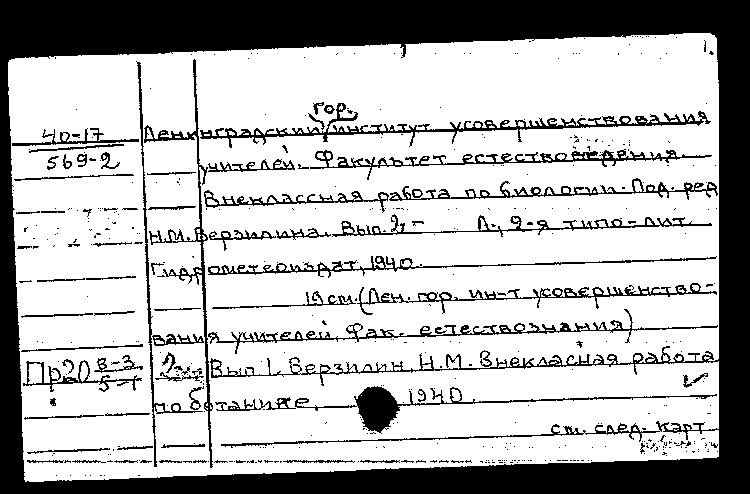 1.
гор.
40-17 Ленинградский институт усовершенствования
569-2 учителей. Факультет естествоведения.
Внеклассная работа по биологии. Под. ред
Н.М. Верзилина. Вып. 2, - Л., 2-я типо-лит.
Гидрометеоиздат, 1940.
19 см. (Лен. гор. ин-т усовершенство-
вания учителей, Фак. естествознания)
Пр20 В-3/5-1 Вып 1. Верзилин, Н.М. Внекласная работа
по ботанике. 1940.
см. след. карт